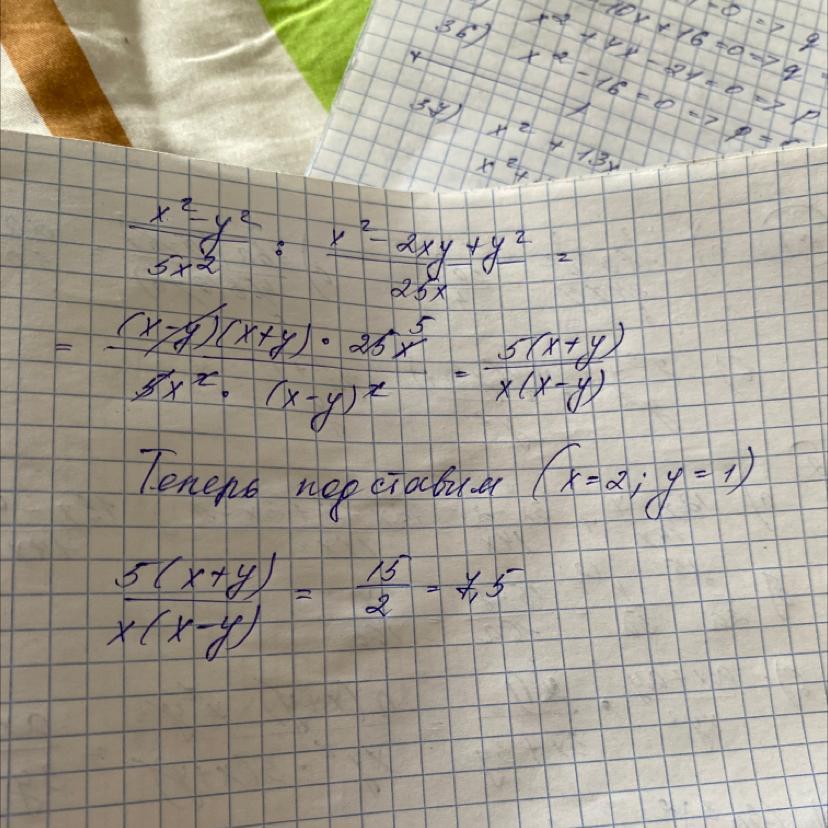 36)
x² + 4x - 21 = 0 => q
x² - 16 = 0 => p
37)
x² + 13x
(x² - y²)/(5x²) : (x² - 2xy + y²)/(25x) =
= ((x-y)(x+y) · 25x 5)/(5x² · (x-y)²) = (5(x+y))/(x(x-y))
Теперь подставим (x=2; y=1)
(5(x+y))/(x(x-y)) = 15/2 = 7,5